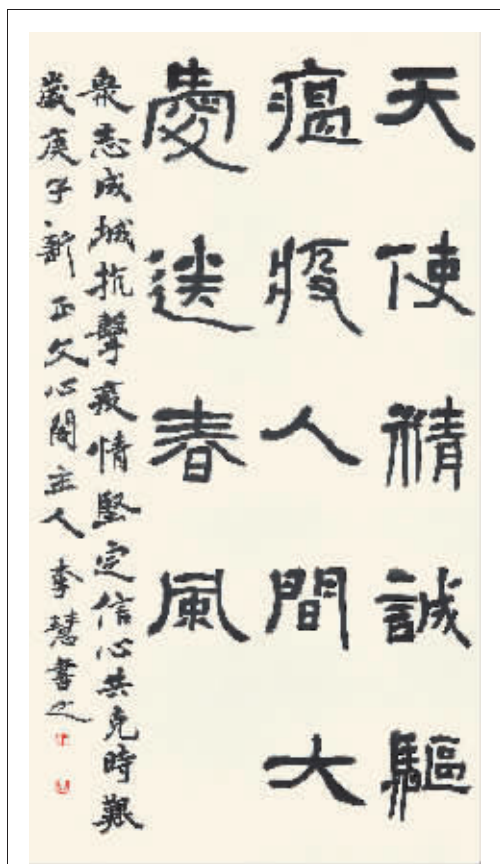 天使精誠驅
瘟疫人間大
愛送春風
衆志成城抗擊疫情堅定信心共克時艱
歲庚子新正文心閣主人李慧書之